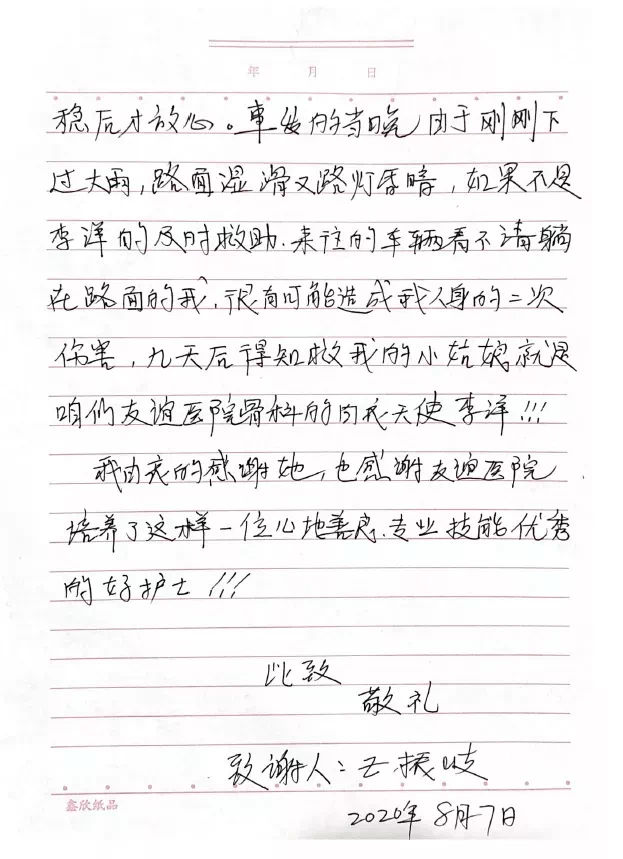 年 月 日
稳后才放心。事发的当晚由于刚刚下
过大雨，路面湿滑又路灯昏暗，如果不是
李洋的及时救助.来往的车辆看不清躺
在路面的我，很有可能造成我人身的二次
伤害，九天后得知救我的小姑娘就是
咱们友谊医院骨科的白衣天使李洋！！！
我由衷的感谢她，也感谢友谊医院
培养了这样一位心地善良、专业技能优秀
的好护士！！！
此致
敬礼
致谢人：振岐
2020年8月7日
鑫欣纸品